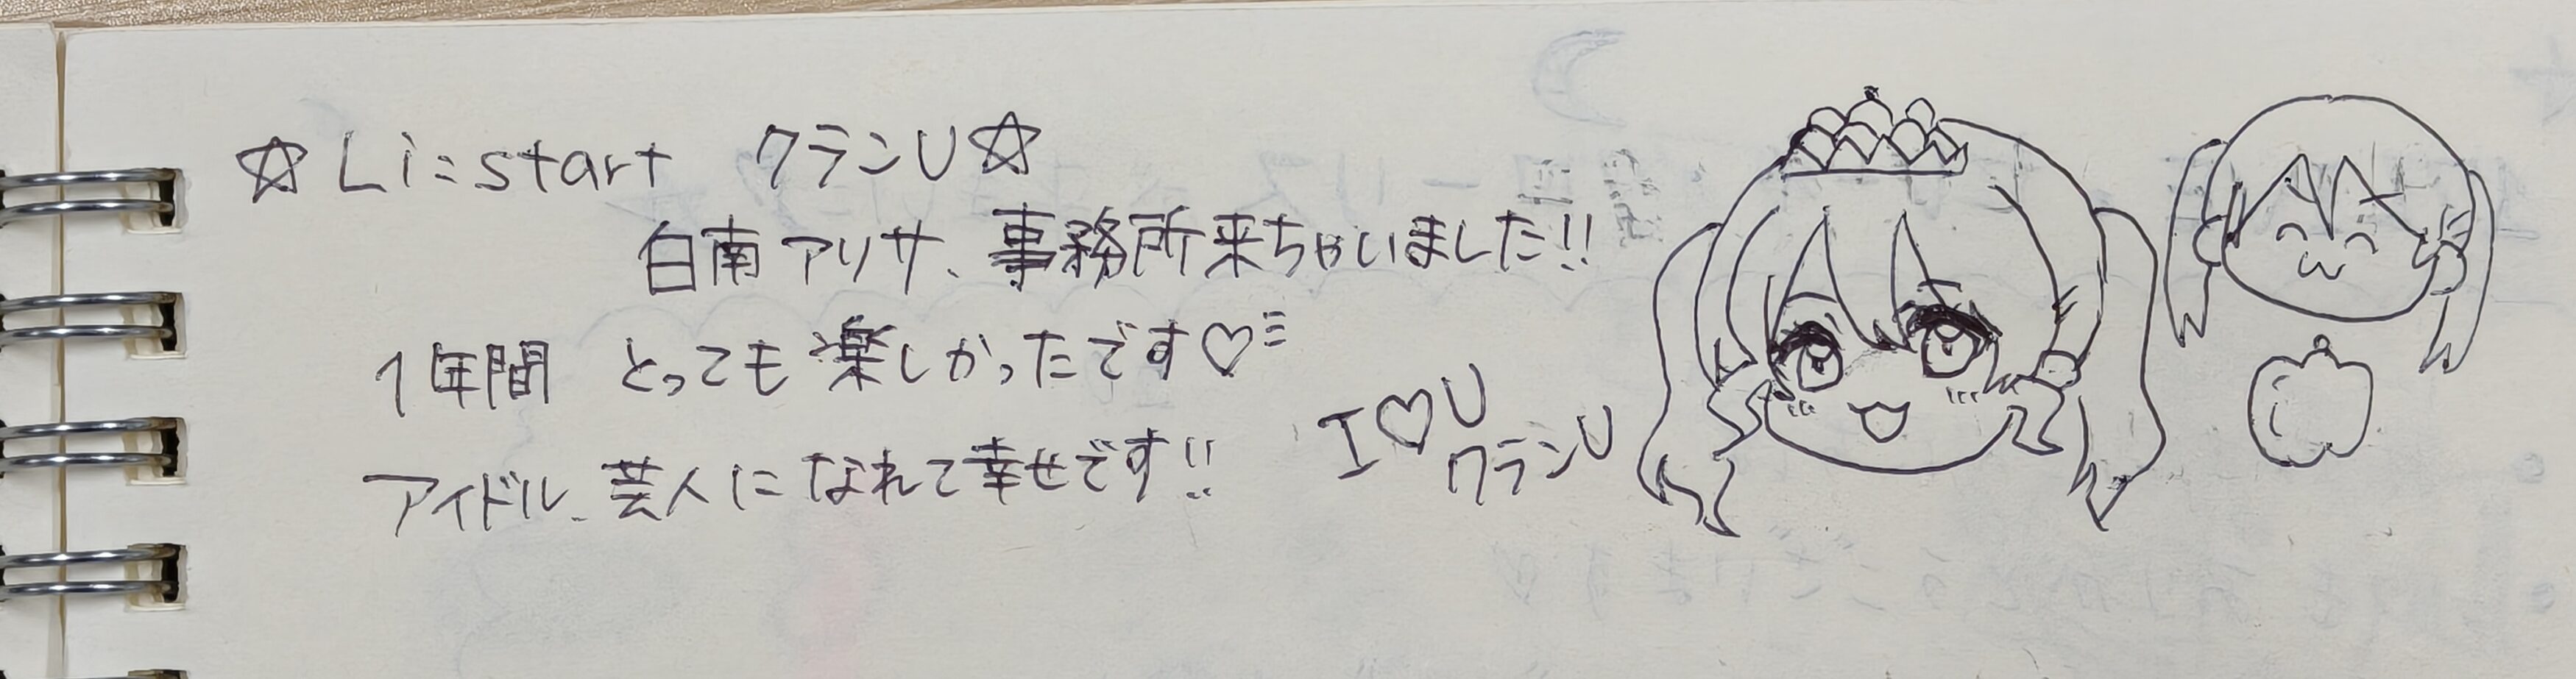 ☆Li:start クランU☆
白南アリサ、事務所来ちゃいました!!
1年間 とっても楽しかったです♡
アイドル、芸人になれて幸せです!!
I♡U
クランU